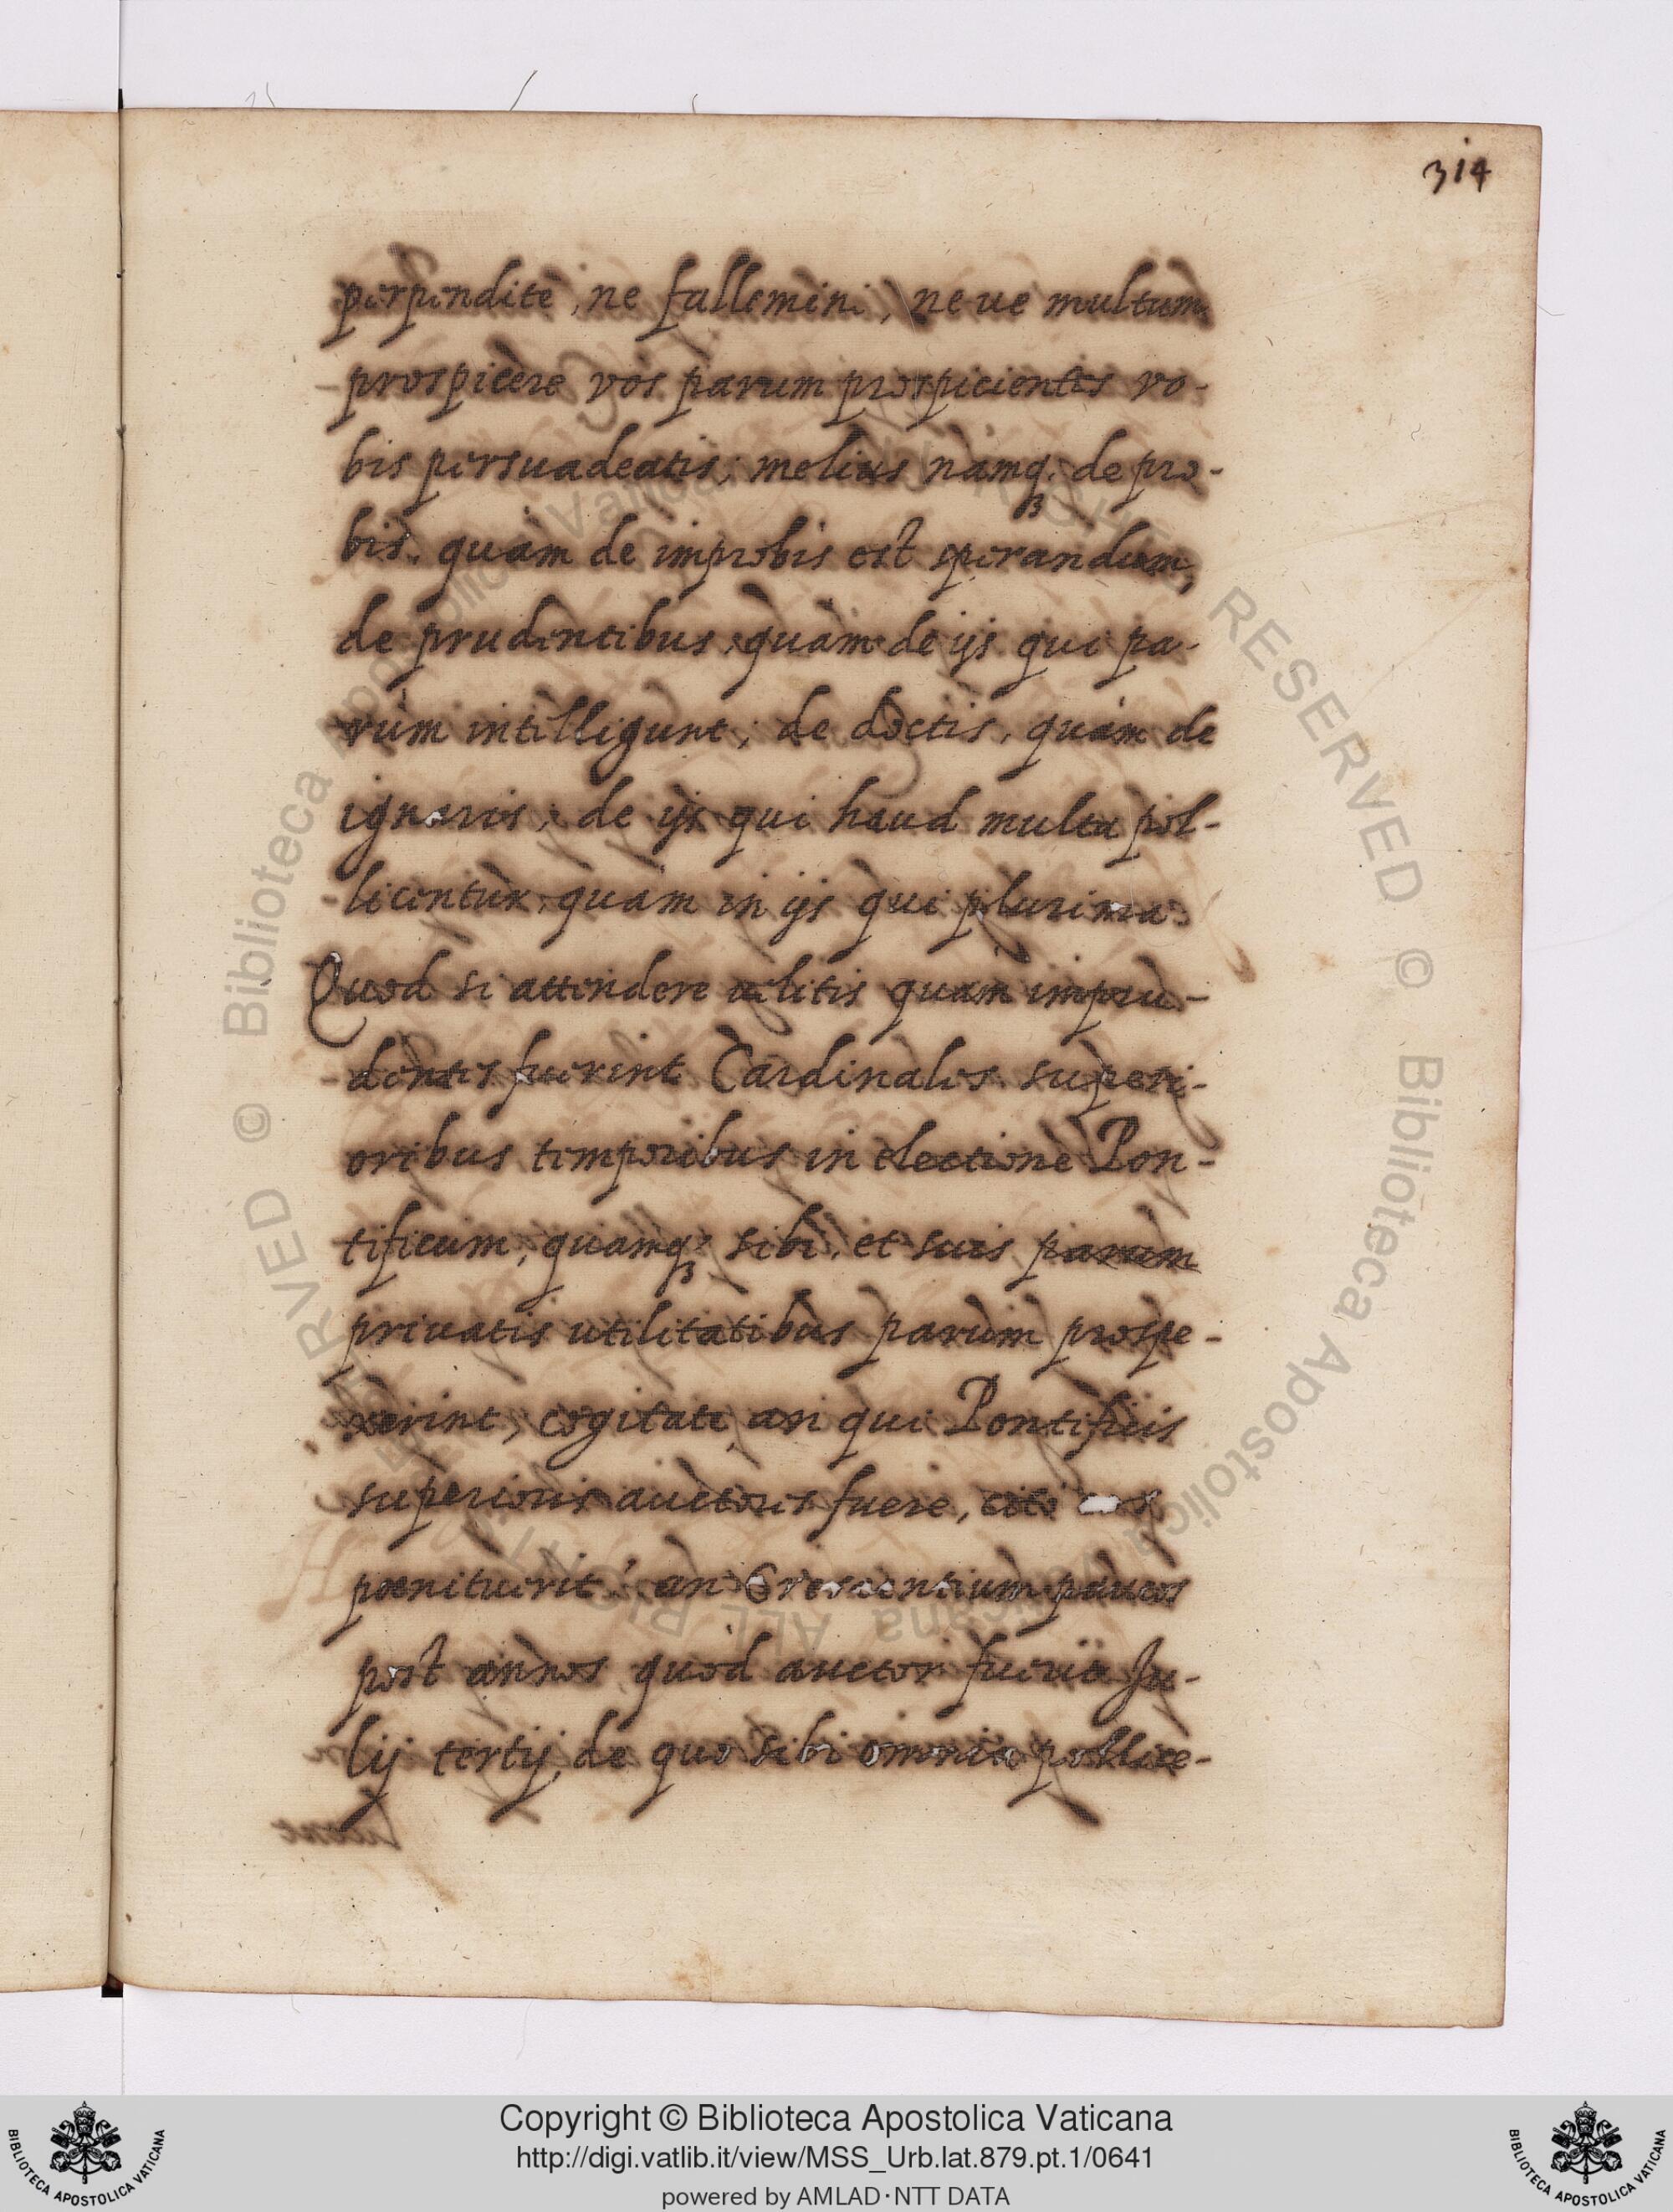 314
perpendite, ne fallemini, neue multum
prospicere vos parum prospicientes vo-
bis persuadeatis; melius namq; de pro-
bis, quàm de improbis est sperandum,
de prudentibus, quàm de ijs qui pa-
rùm intelligunt; de doctis, quàm de
ignaris; de ijs qui haud multa pol-
licentur, quàm in ijs qui plurima.
Quod si attendere uelitis quàm impru-
dentes fuerint Cardinales superi-
oribus temporibus in electione Pon-
tificum, quamq; sibi, et suis parum
priuatis utilitatibus parùm prospe-
xerint, cogitate, an qui Pontificis
superioris auctores fuere, cito
pœnituerit? an Crescentium paucos
post annos, quòd auctor fuerit Ju-
lij tertij, de quo sibi omnia pollice-
Copyright © Biblioteca Apostolica Vaticana
http://digi.vatlib.it/view/MSS_Urb.lat.879.pt.1/0641
powered by AMLAD·NTT DATA
BIBLIOTECA APOSTOLICA VATICANA
BIBLIOTECA APOSTOLICA VATICANA